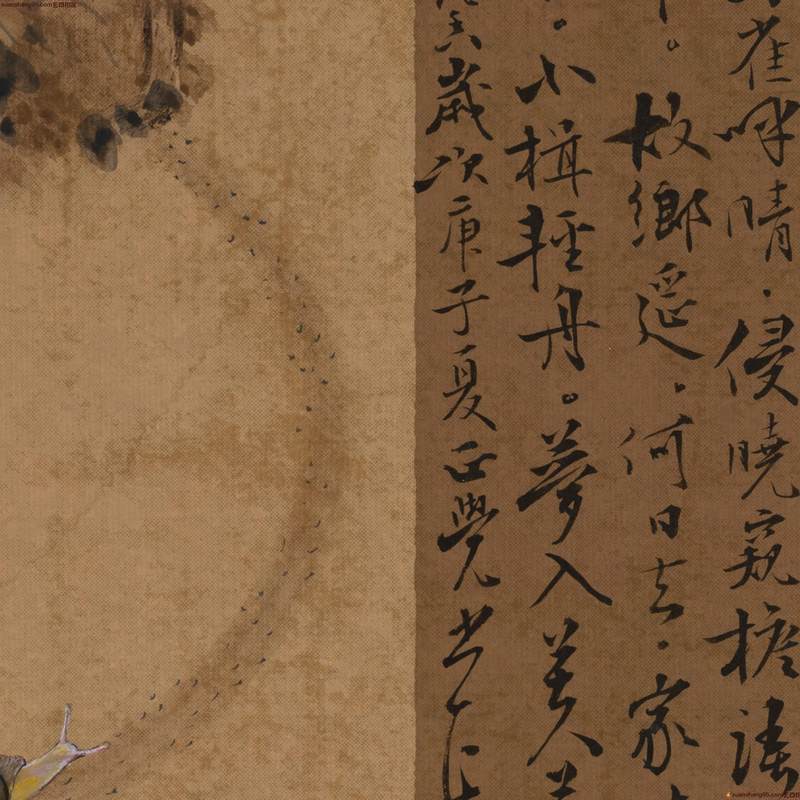 雀呼晴．侵曉窺檐語
。故鄉遥．何日去．家
。小楫輕舟。夢入芙
歲次庚子夏正覺书